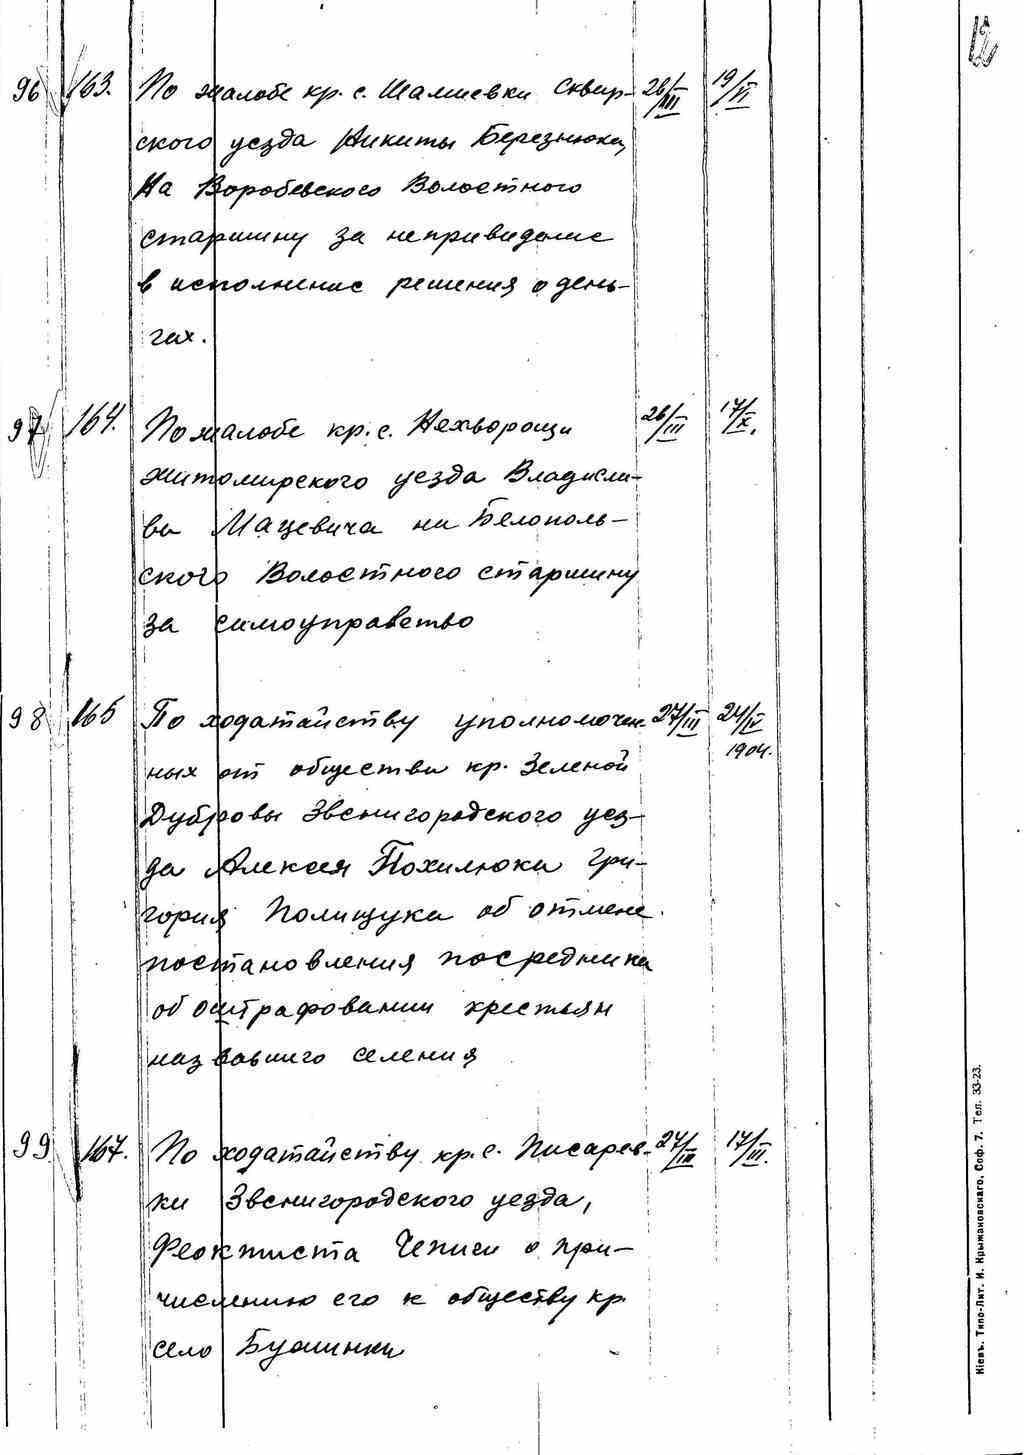 12
96 163. По жалобе кр. с. Шалиевки Сквир- 26/III 19/VI
ского уезда Никиты Березнюка,
На Воробевского Волостного
старшину за неприведение
в исполнение решения о день-
гах.
97 164. По жалобе кр. с. Нехворощи 26/III 17/X.
Житомирского уезда Владисла-
ва Мацевича на Белополь-
ского Волостного старшину
за самоуправство
98 165 По ходатайству уполномочен- 27/III 24/IV
1904.
ных от общества кр. Зеленой
Дубровы Звенигородского уез-
да Алексея Похилюка Гри-
гория Полищука об отмене
постановления посредника
об оштрафовании крестьян
назвавшего селения
99. 167. По ходатайству кр. с. Писарев- 27/III 17/III.
ки Звенигородского уезда,
Феоктиста Чепиги о при-
числению его к обществу кр.
село Бужинки
Кіевъ. Типо-Лит. И. Крыжановскаго. Соф. 7. Тел. 33-23.